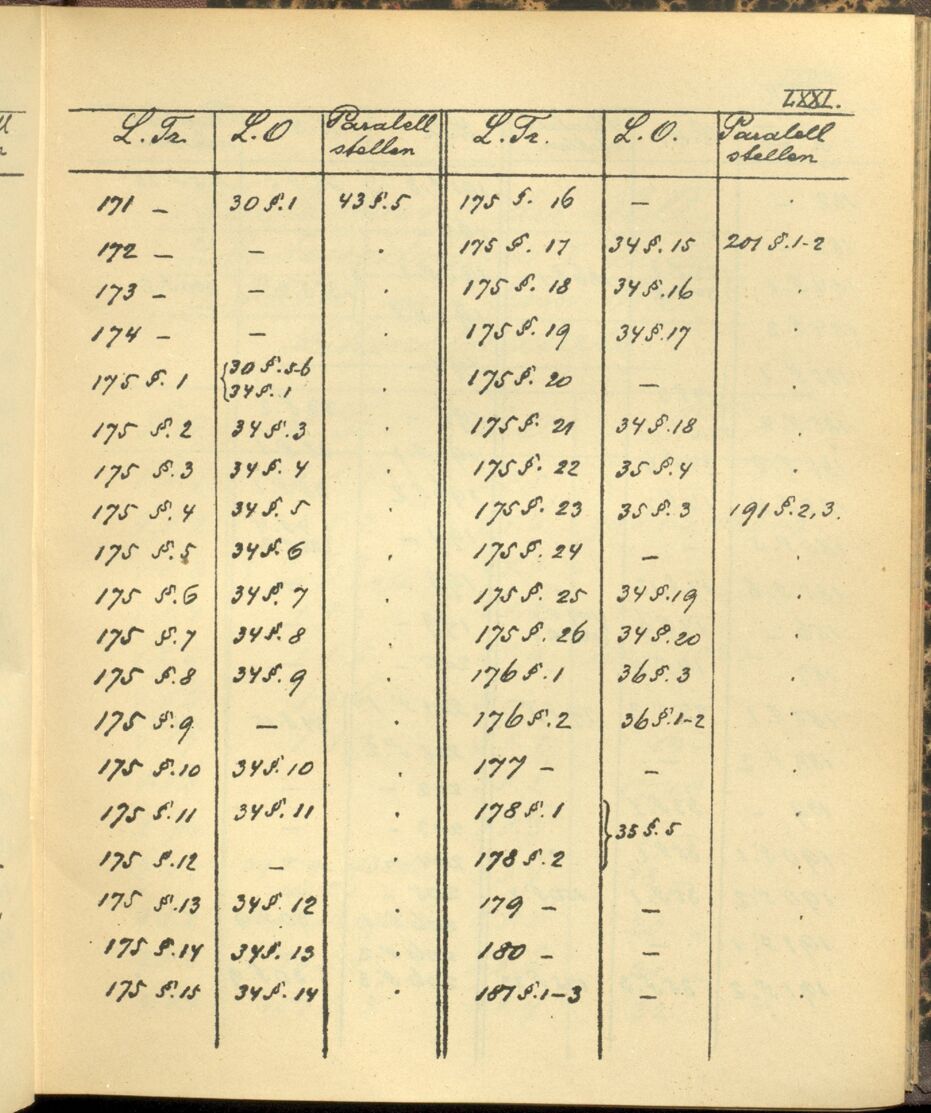 LXXI.
L. Tr. L. O Paralell stellen L. Tr. L. O. Paralell stellen
171 – 30 §.1 43 §.5 175 §. 16 – .
172 – – . 175 §. 17 34 §. 15 201 §.1-2
173 – – . 175 §. 18 34 §.16 .
174 – – . 175 §. 19 34 §.17 .
175 §. 1 {30 §.5-6 34 §. 1 . 175 §. 20 – .
175 §. 2 34 §. 3 . 175 §. 21 34 §.18 .
175 §. 3 34 §. 4 . 175 §. 22 35 §. 4 .
175 §. 4 34 §. 5 . 175 §. 23 35 §. 3 191 §. 2, 3.
175 §. 5 34 §. 6 . 175 §. 24 – .
175 §. 6 34 §. 7 . 175 §. 25 34 §.19 .
175 §. 7 34 §. 8 . 175 §. 26 34 §.20 .
175 §. 8 34 §. 9 . 176 §. 1 36 §. 3 .
175 §. 9 – . 176 §. 2 36 §.1-2 .
175 §. 10 34 §. 10 . 177 – – .
175 §. 11 34 §. 11 . 178 §. 1 } 35 §. 5 .
175 §. 12 – . 178 §. 2 .
175 §. 13 34 §. 12 . 179 – – .
175 §. 14 34 §. 13 . 180 – – .
175 §. 15 34 §. 14 . 181 §. 1-3 – .